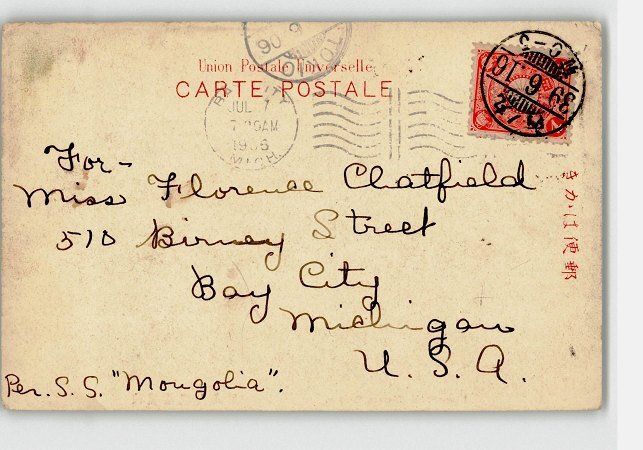 Union Postale Universelle
CARTE POSTALE
BAY CITY
JUL
1906
MICH.
39.6.16
For-
Miss Florence Chatfield
510 Birney Street
Bay City
Michigan
U.S.A.
Per. S.S. "Mongolia".
きかは便郵